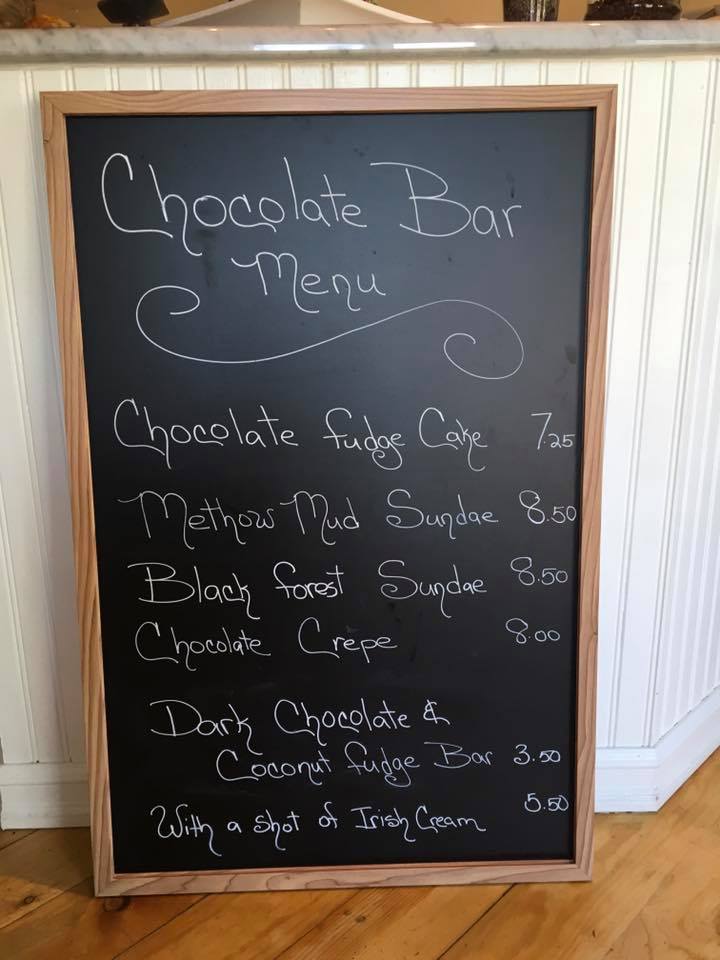 Chocolate Bar
Menu
Chocolate fudge Cake 7.25
Methow Mud Sundae 8.50
Black forest Sundae 8.50
Chocolate Crepe 8.00
Dark Chocolate &
Coconut fudge Bar 3.50
With a shot of Irish Cream 5.50